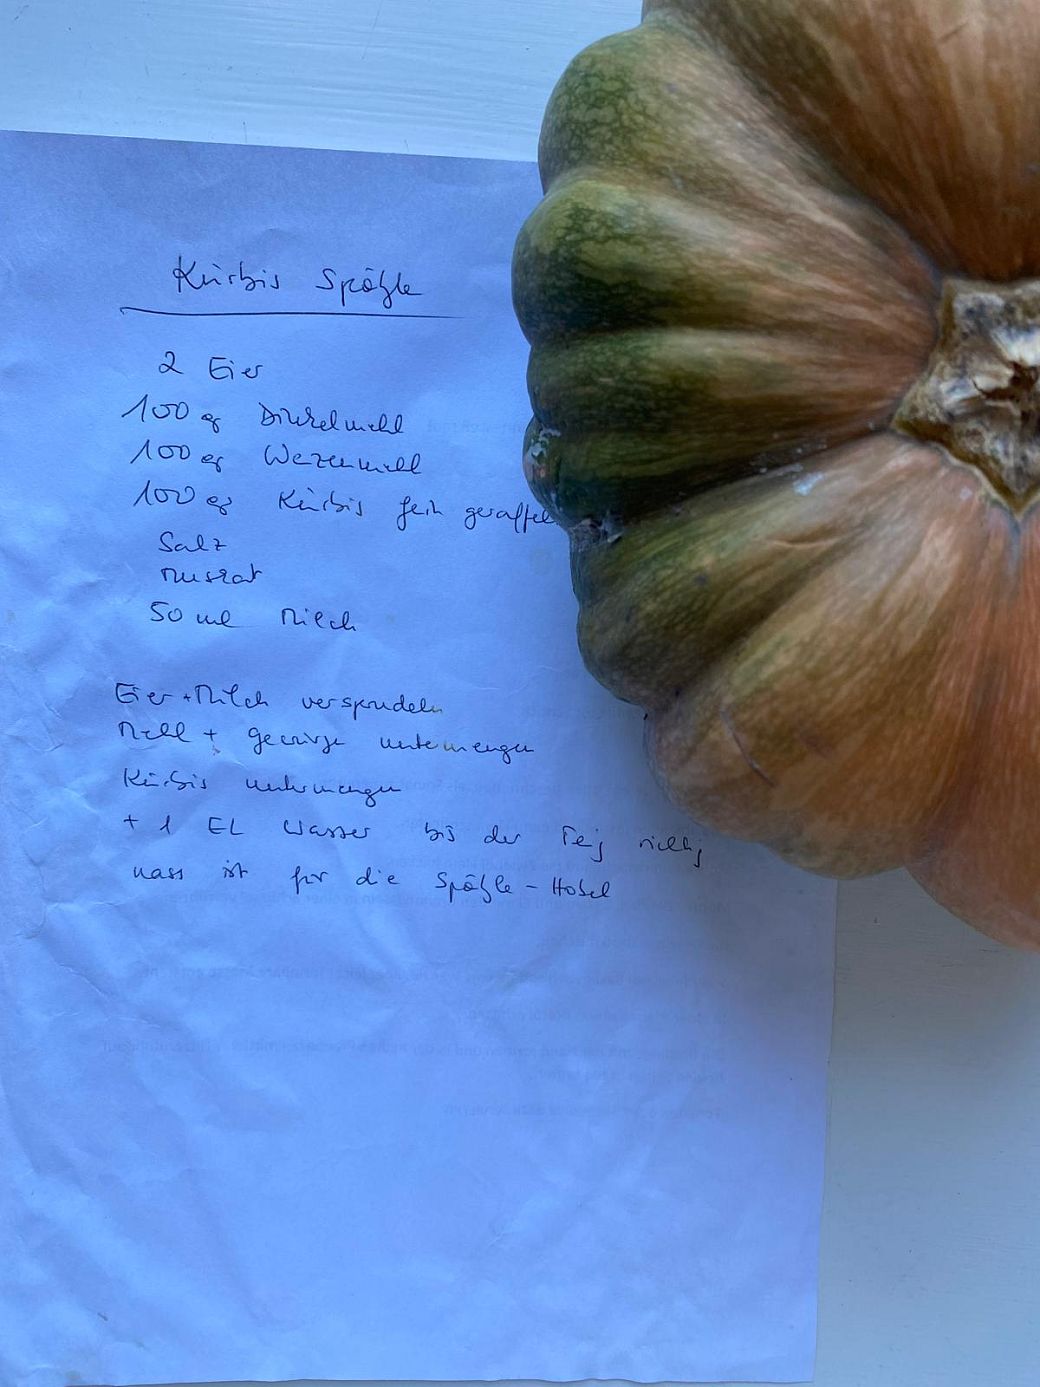 Kürbis Spätzle
2 Eier
100 g Dinkelmehl
100 g Weizenmehl
100 g Kürbis fein geraffel
Salz
Muskat
50 ml Milch
Eier + Milch versprudeln
Mehl + Gewürze untermengen
Kürbis untermengen
+ 1 EL Wasser bis der Teig richtig
nass ist für die Spätzle - Hobel